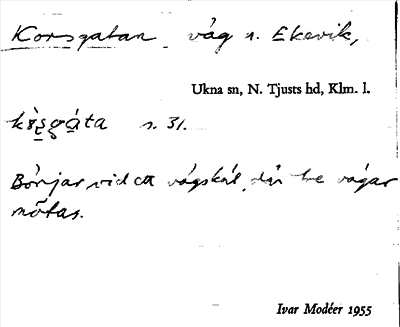 Korsgatan väg n. Ekevik,
Ukna sn, N. Tjusts hd, Klm. l.
s. 31.
Börjar vid ett vägskäl, där tre vägar
mötas.
Ivar Modéer 1955